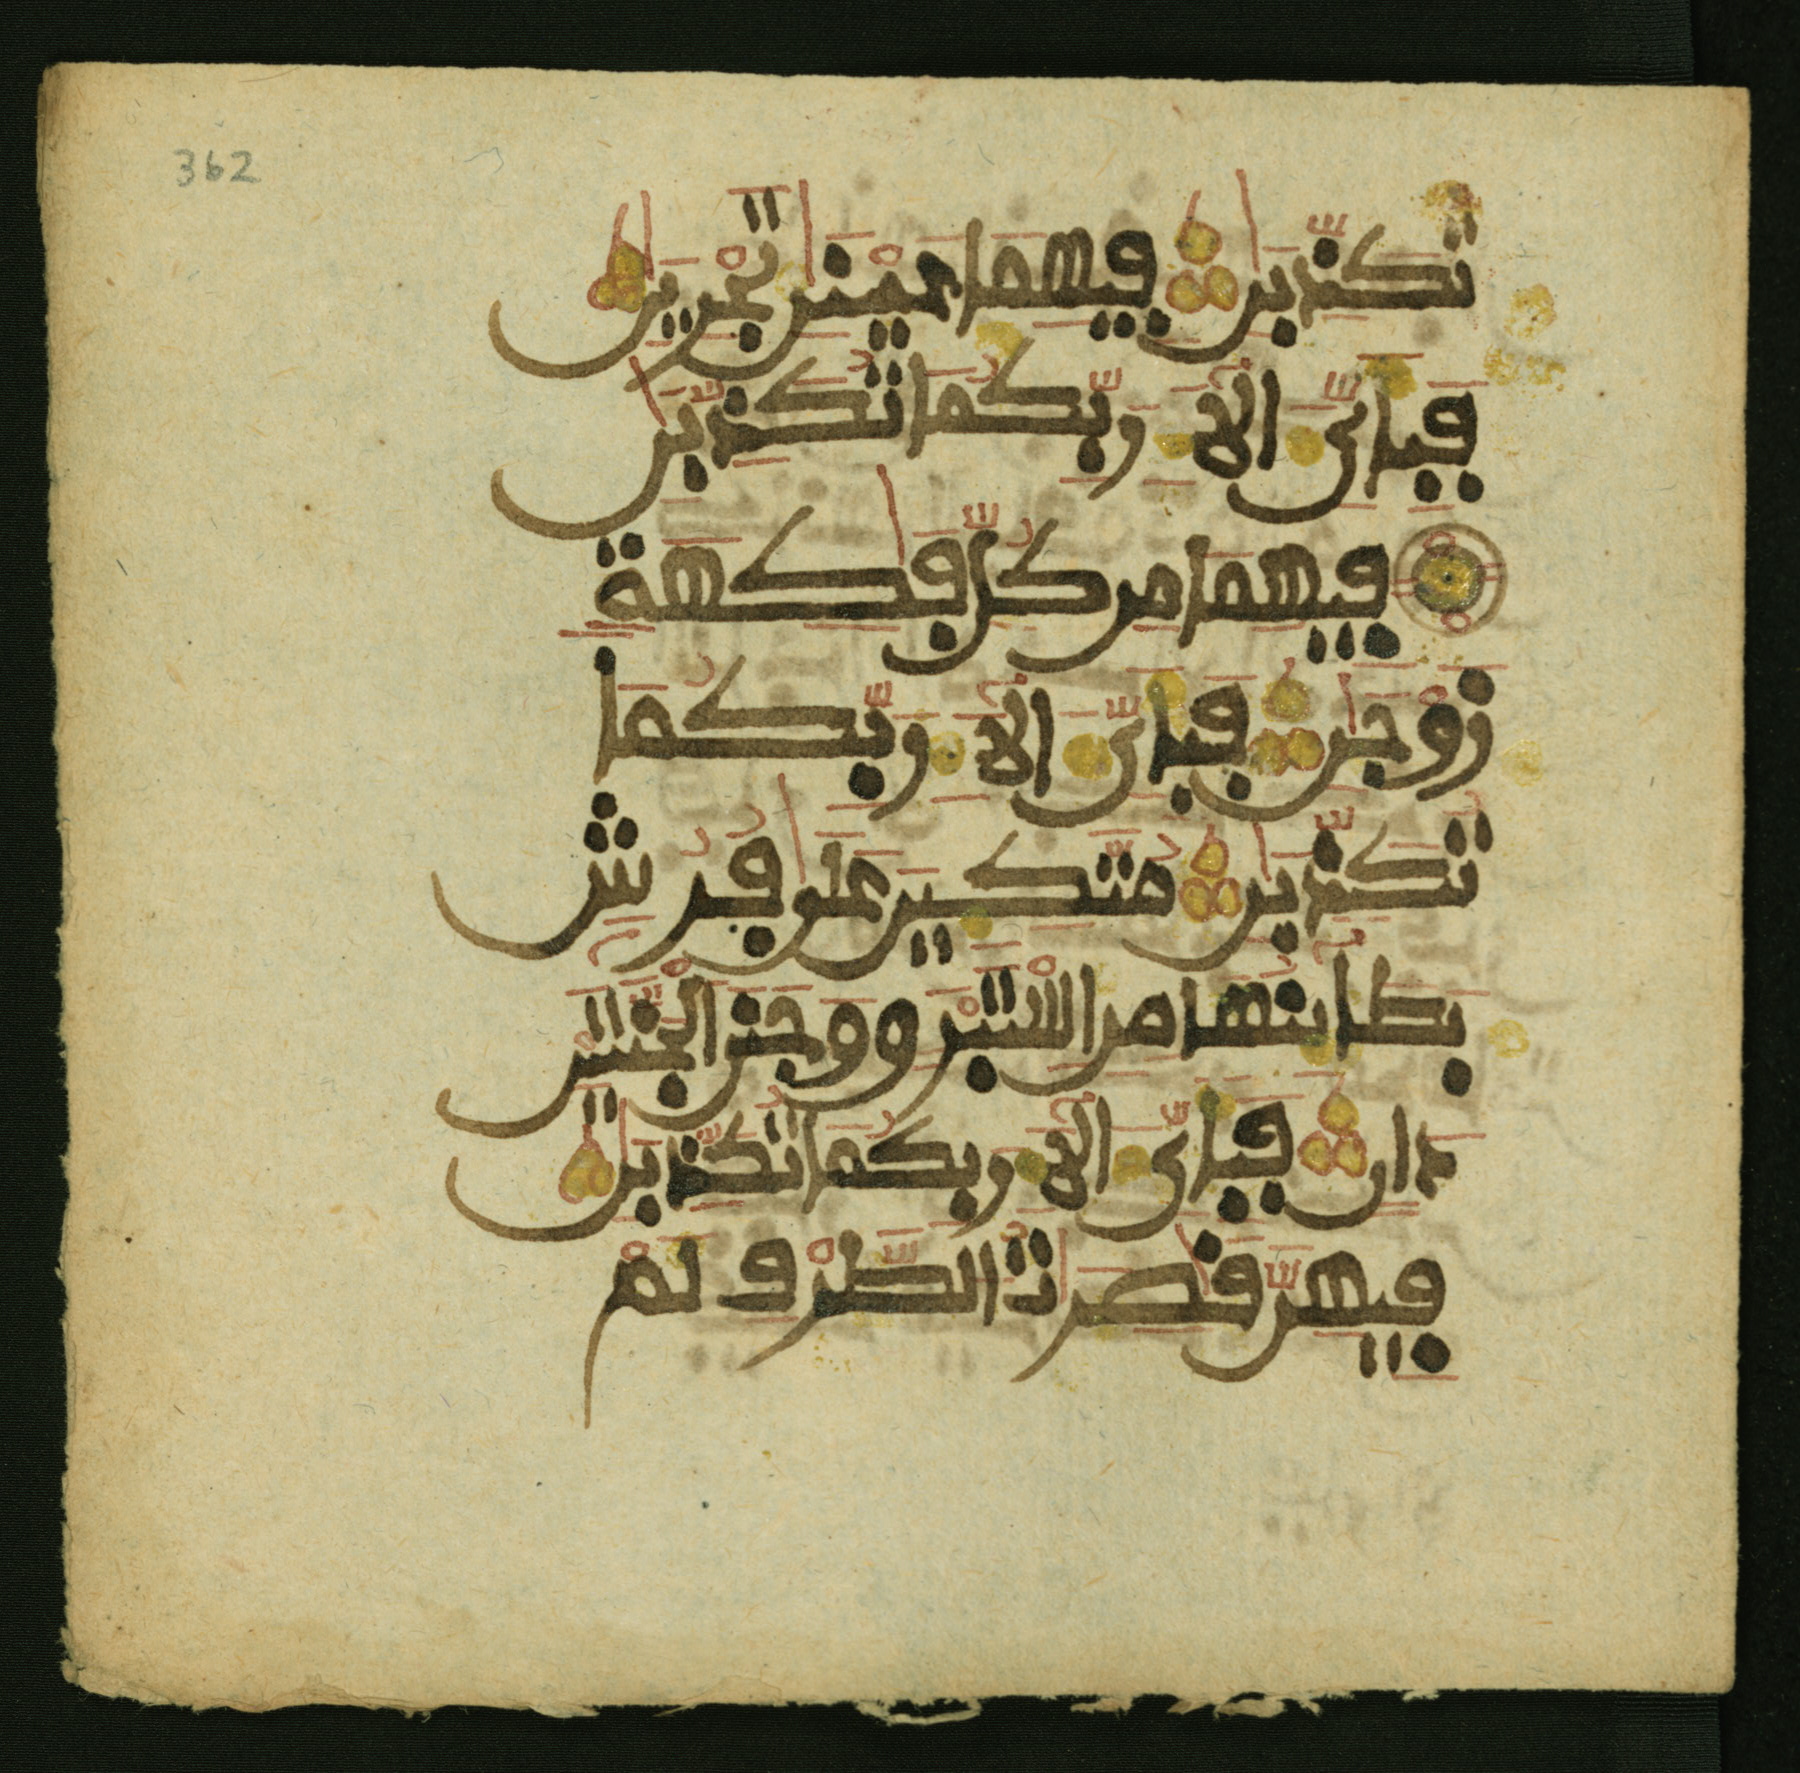 362
تُكَذِّبَٰنِ فِيهِمَا عَيْنَٰنِ تَجْرِيَٰنِ
فَبِأَىِّ ءَالَآءِ رَبِّكُمَا تُكَذِّبَٰنِ
فِيهِمَا مِن كُلِّ فَٰكِهَةٍ
زَوْجَٰنِ فَبِأَىِّ ءَالَآءِ رَبِّكُمَا
تُكَذِّبَٰنِ مُتَّكِـِٔينَ عَلَىٰ فُرُشٍ
بَطَآئِنُهَا مِنْ إِسْتَبْرَقٍ وَجَنَى ٱلْجَنَّتَيْنِ
دَانٍ فَبِأَىِّ ءَالَآءِ رَبِّكُمَا تُكَذِّبَٰنِ
فِيهِنَّ قَٰصِرَٰتُ ٱلطَّرْفِ لَمْ